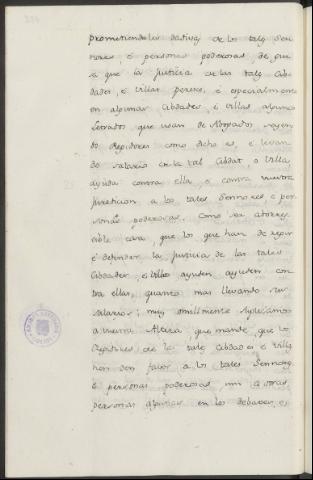 prometiendoles dadivas de los tales Sen
nores, é personas poderosas de
á que la justicia de las tales Cib
dades, é villas perece, é especialmente
en algunas Cibdades é villas algunos
Letrados, que usan de Abogados, seyen
do Regidores como dicho es, é levan
do salario en la tal Cibdat, o villa,
ayuda contra ella, o contra vuestra
juridicion a los tales Sennores é per
sonas poderosas. Como sea aborres
cible cosa, que los que han de regir
é defender la justicia de las tales
Cibdades, é villas ayuden con
tra ellas, quanto mas llevando su
salario; muy omillmente suplicamos
a vuestra Alteza, que mande que los
Regidores de las tales Cibdades é villas
non den favor a los tales Sennores,
é personas poderosas, nin a otras
personas algunas en los debates, é